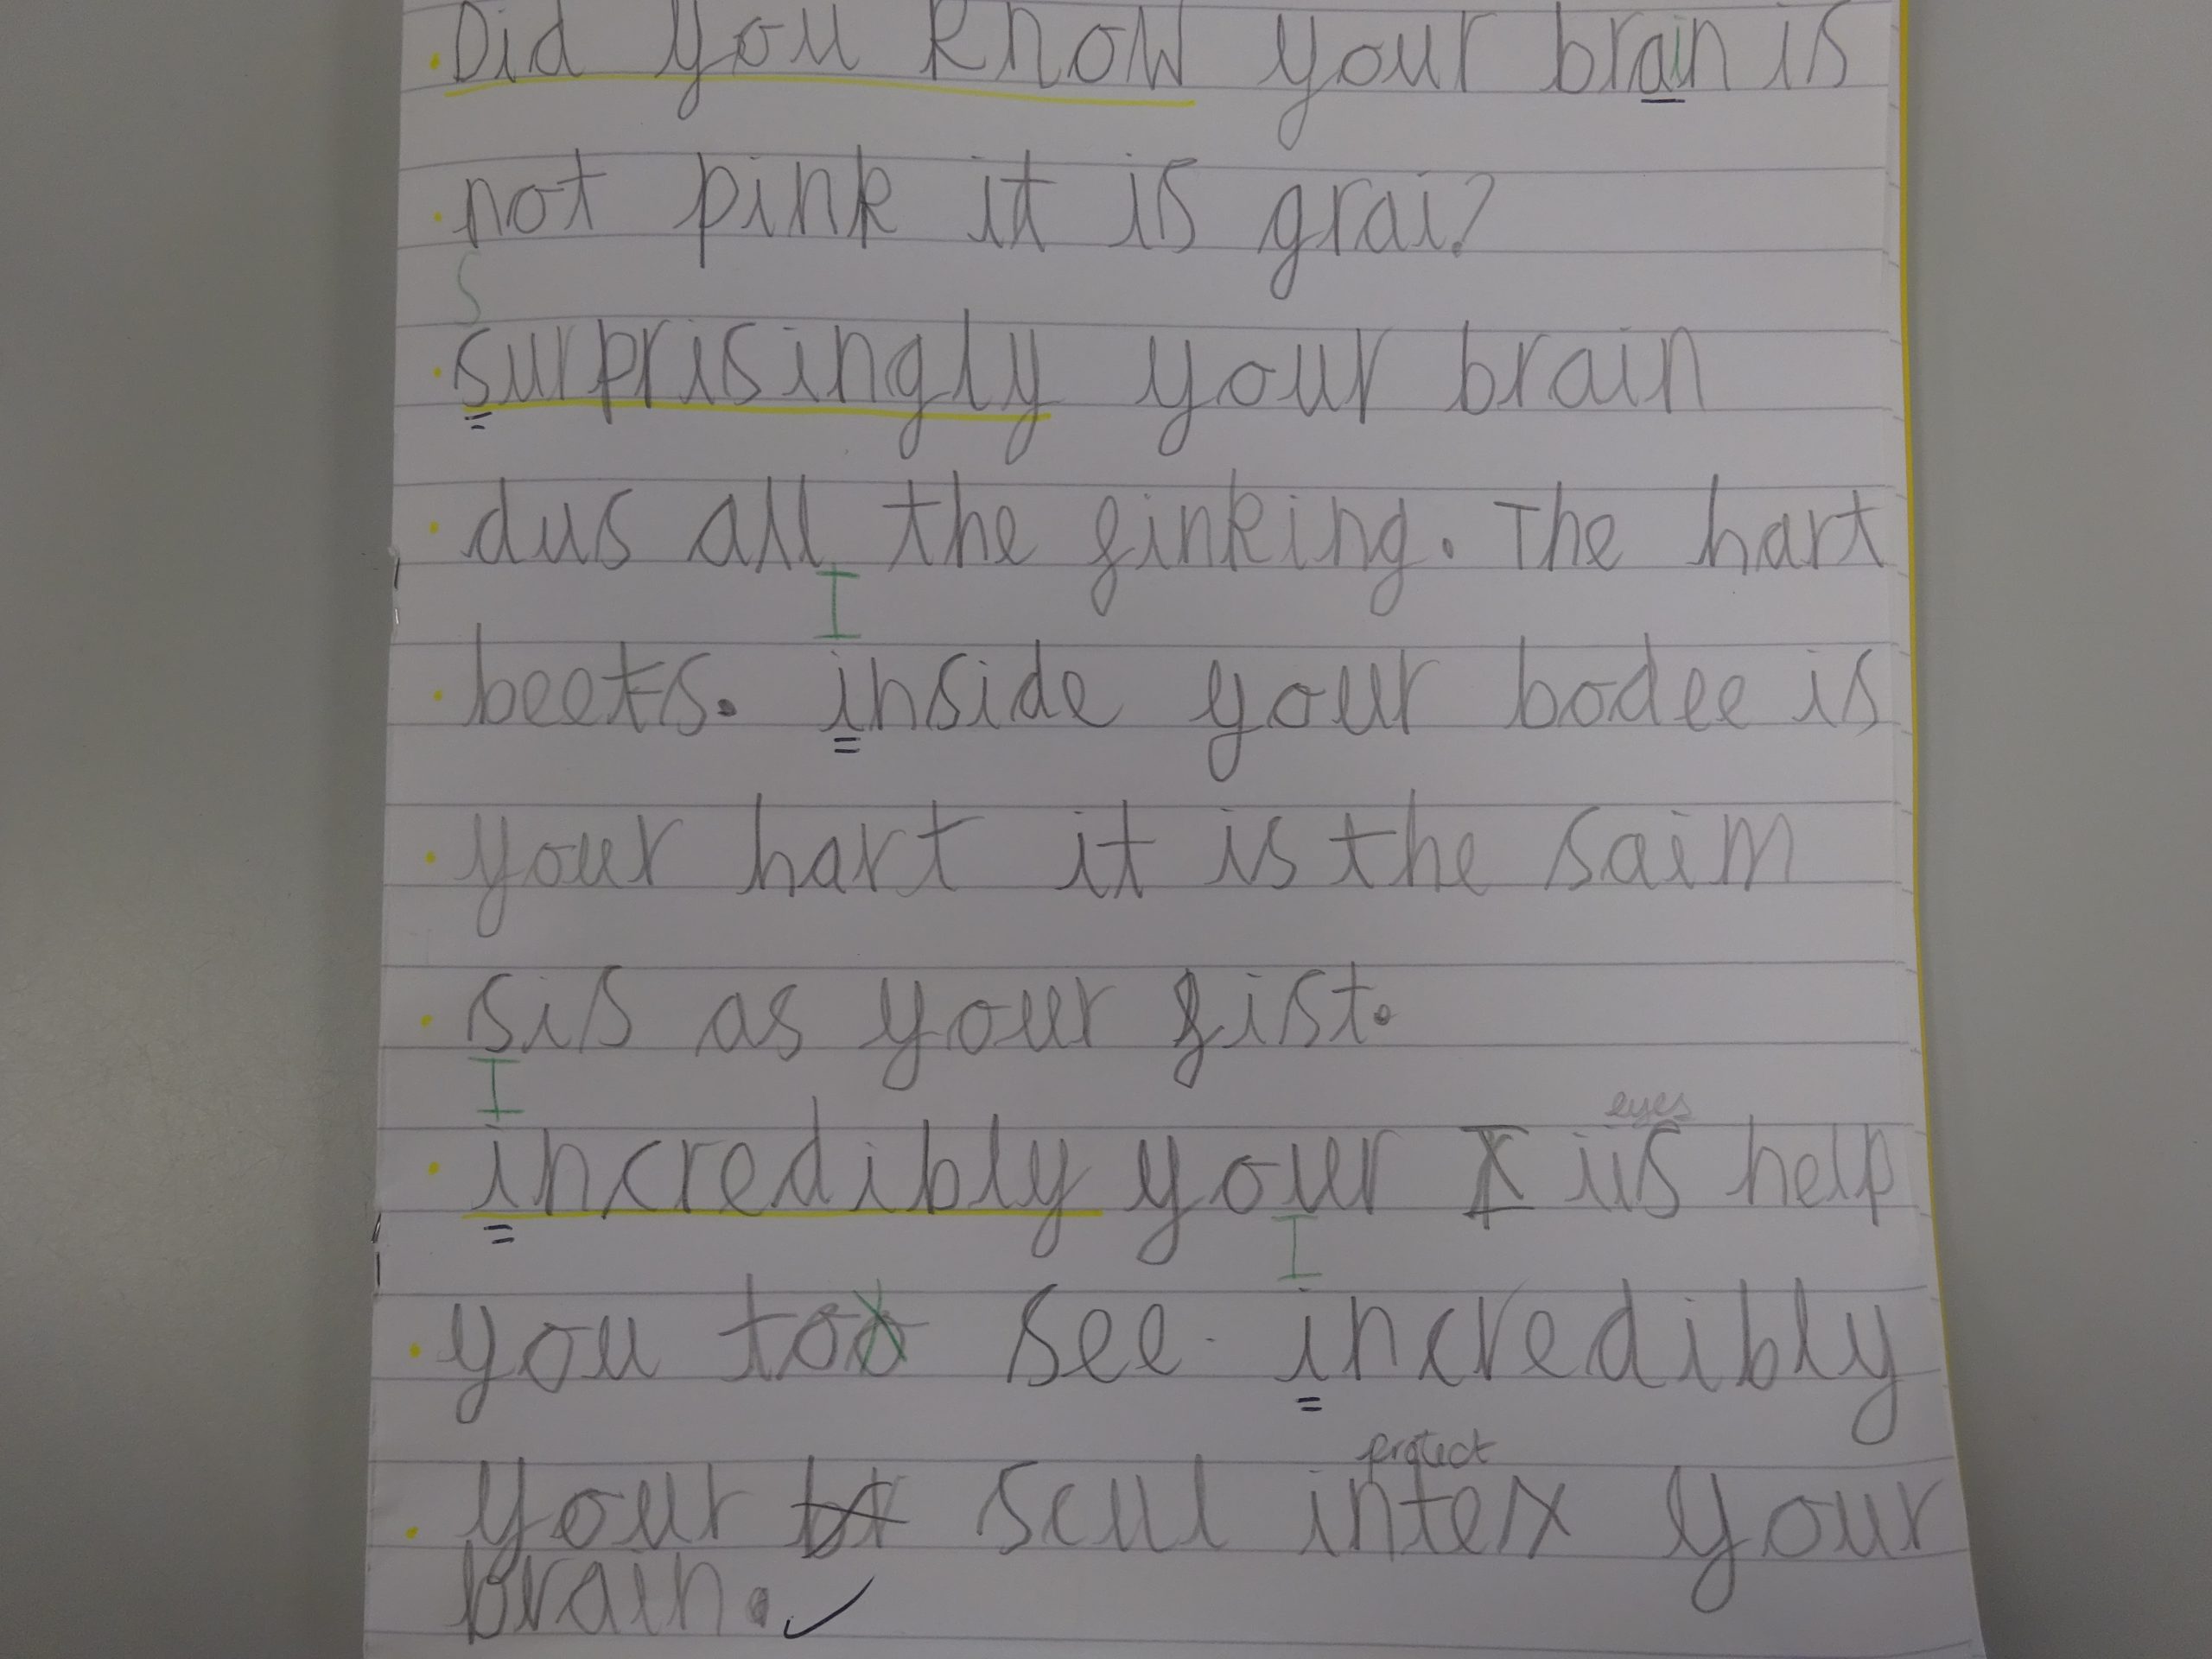 Did you know your brain is
not pink it is grai?
S
surprisingly your brain
dus all the finking. The hart
I
beets. inside your bodee is
your hart it is the saim
sis as your fist.
I
eyes
incredibly your I iis help
I
you too see. incredibly
protect
your scul intex your
brain.